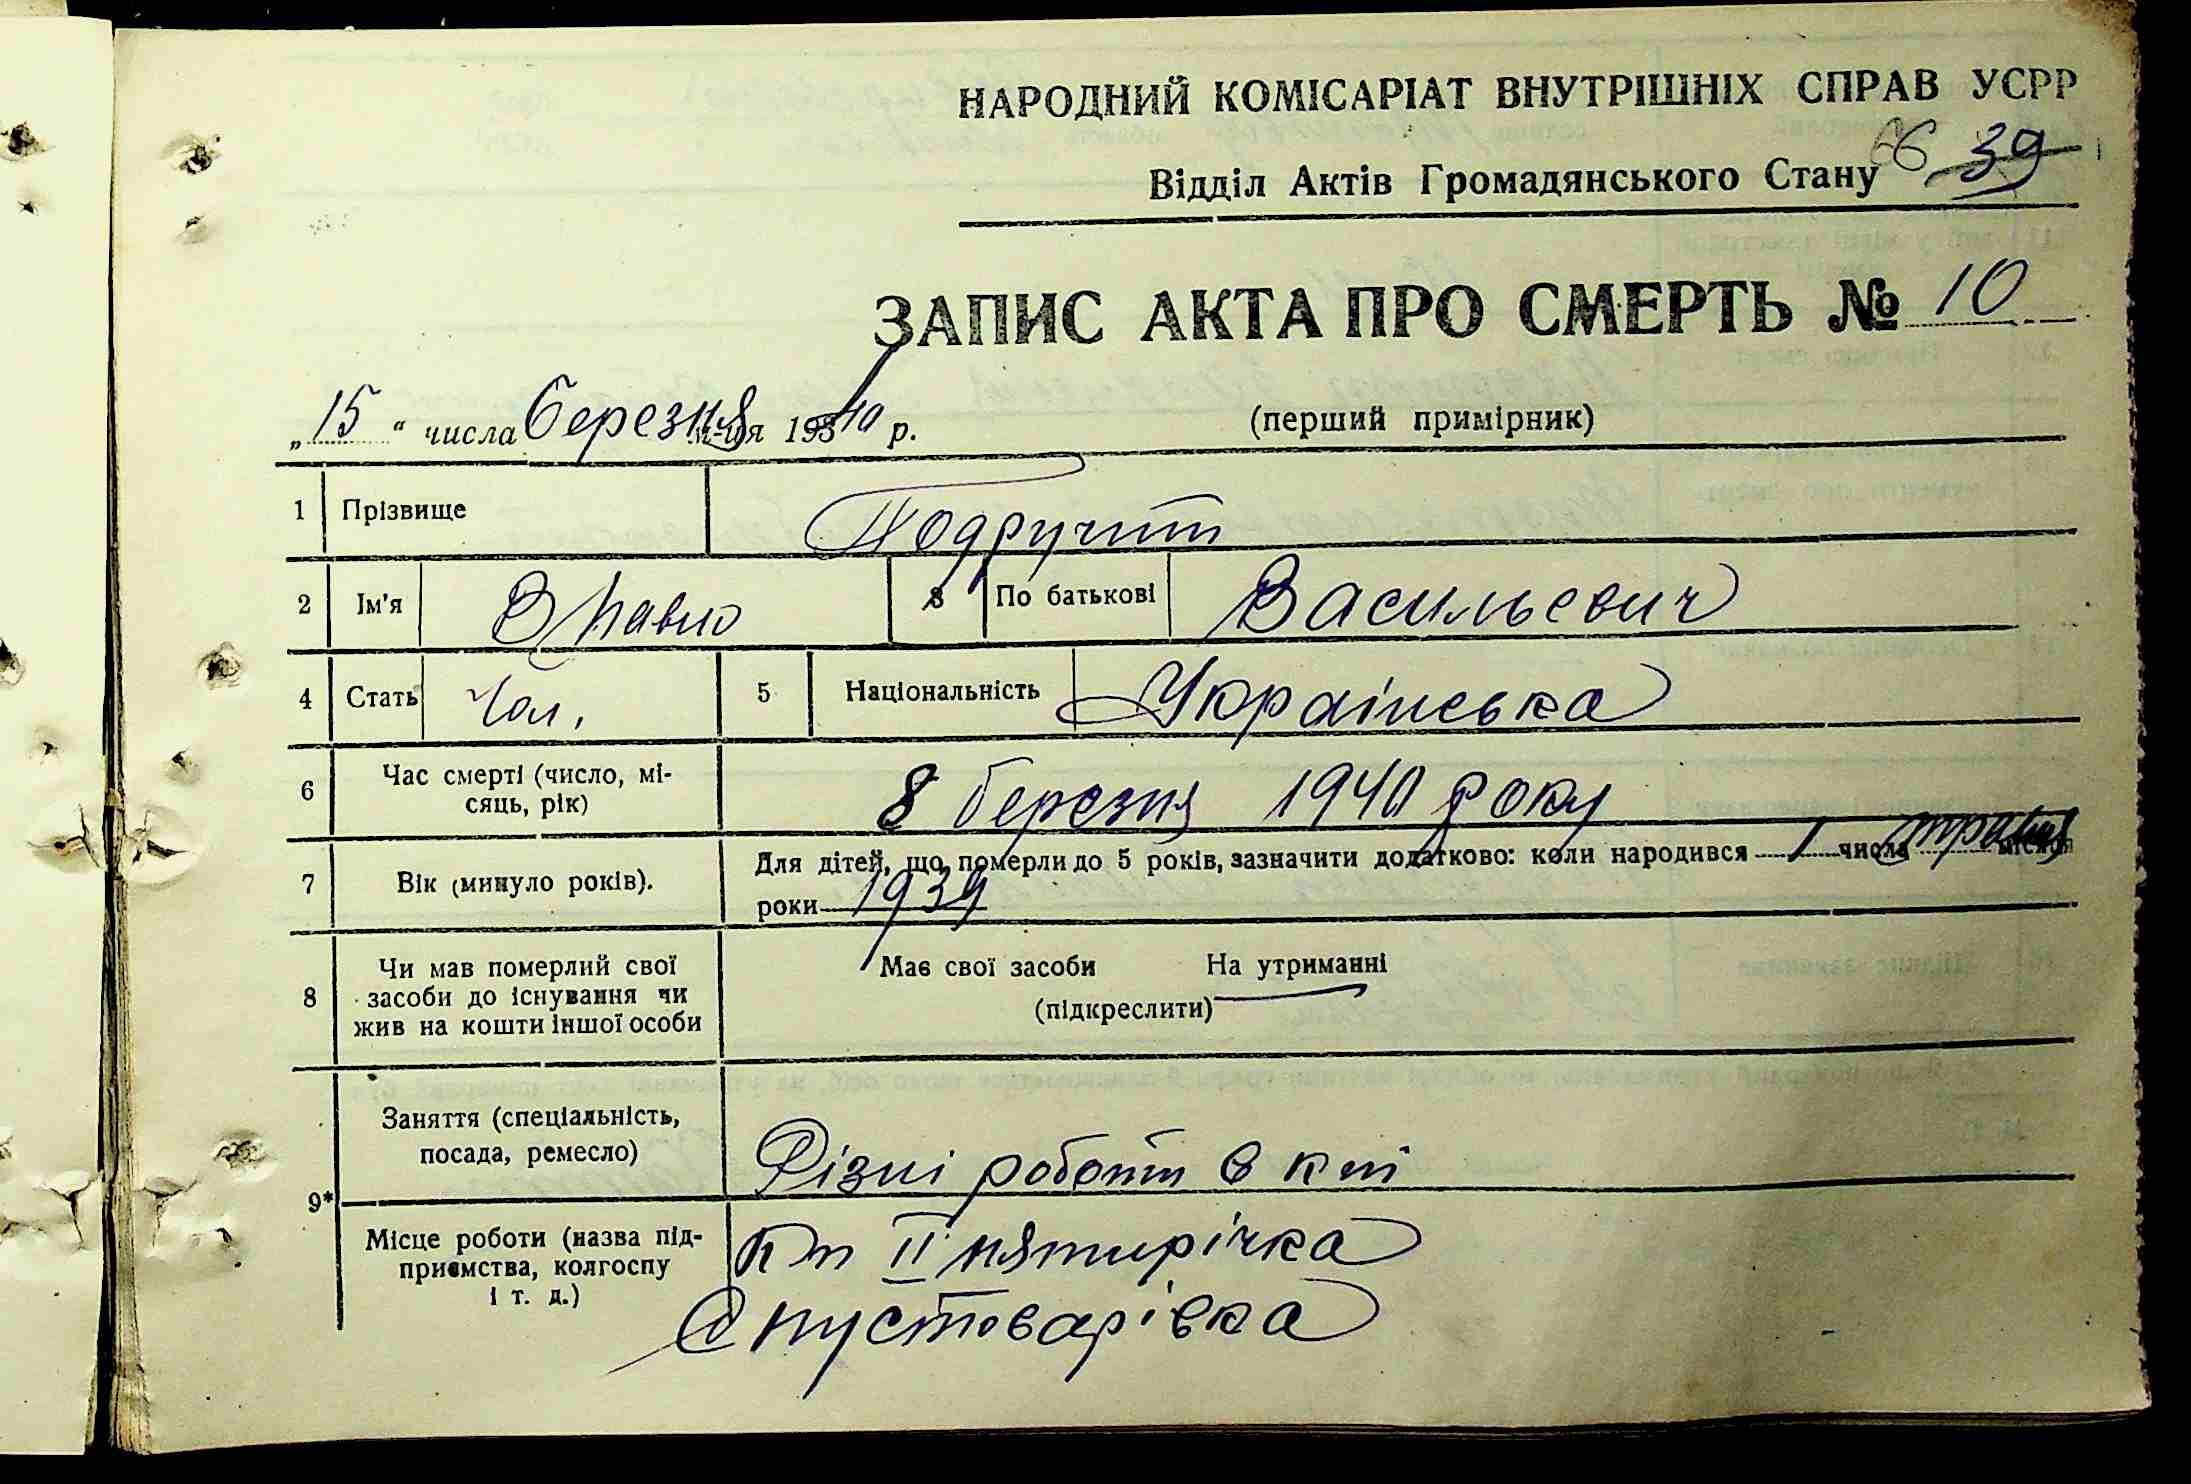 НАРОДНИЙ КОМІСАРІАТ ВНУТРІШНІХ СПРАВ УСРР
66 39
Відділ Актів Громадянського Стану
ЗАПИС АКТА ПРО СМЕРТЬ № 10
„15“ числа березня м-ця 1940 р. (перший примірник)
1 Прізвище
2 Ім'я Павло 3 По батькові Васильевич
4 Стать Чол. 5 Національність Українська
6 Час смерті (число, мі-
сяць, рік) 8 березня 1940 року
7 Вік (минуло років). Для дітей, що померли до 5 років, зазначити додатково: коли народився 1 числа травня місяця
роки 1939
8 Чи мав померлий свої
засоби до існування чи
жив на кошти іншої особи
Має свої засоби На утриманні
(підкреслити)
9* Заняття (спеціальність,
посада, ремесло) Різні роботи в
Місце роботи (назва під-
приємства, колгоспу
і т. д.)
ІІ пятирічка
с пустоварівка